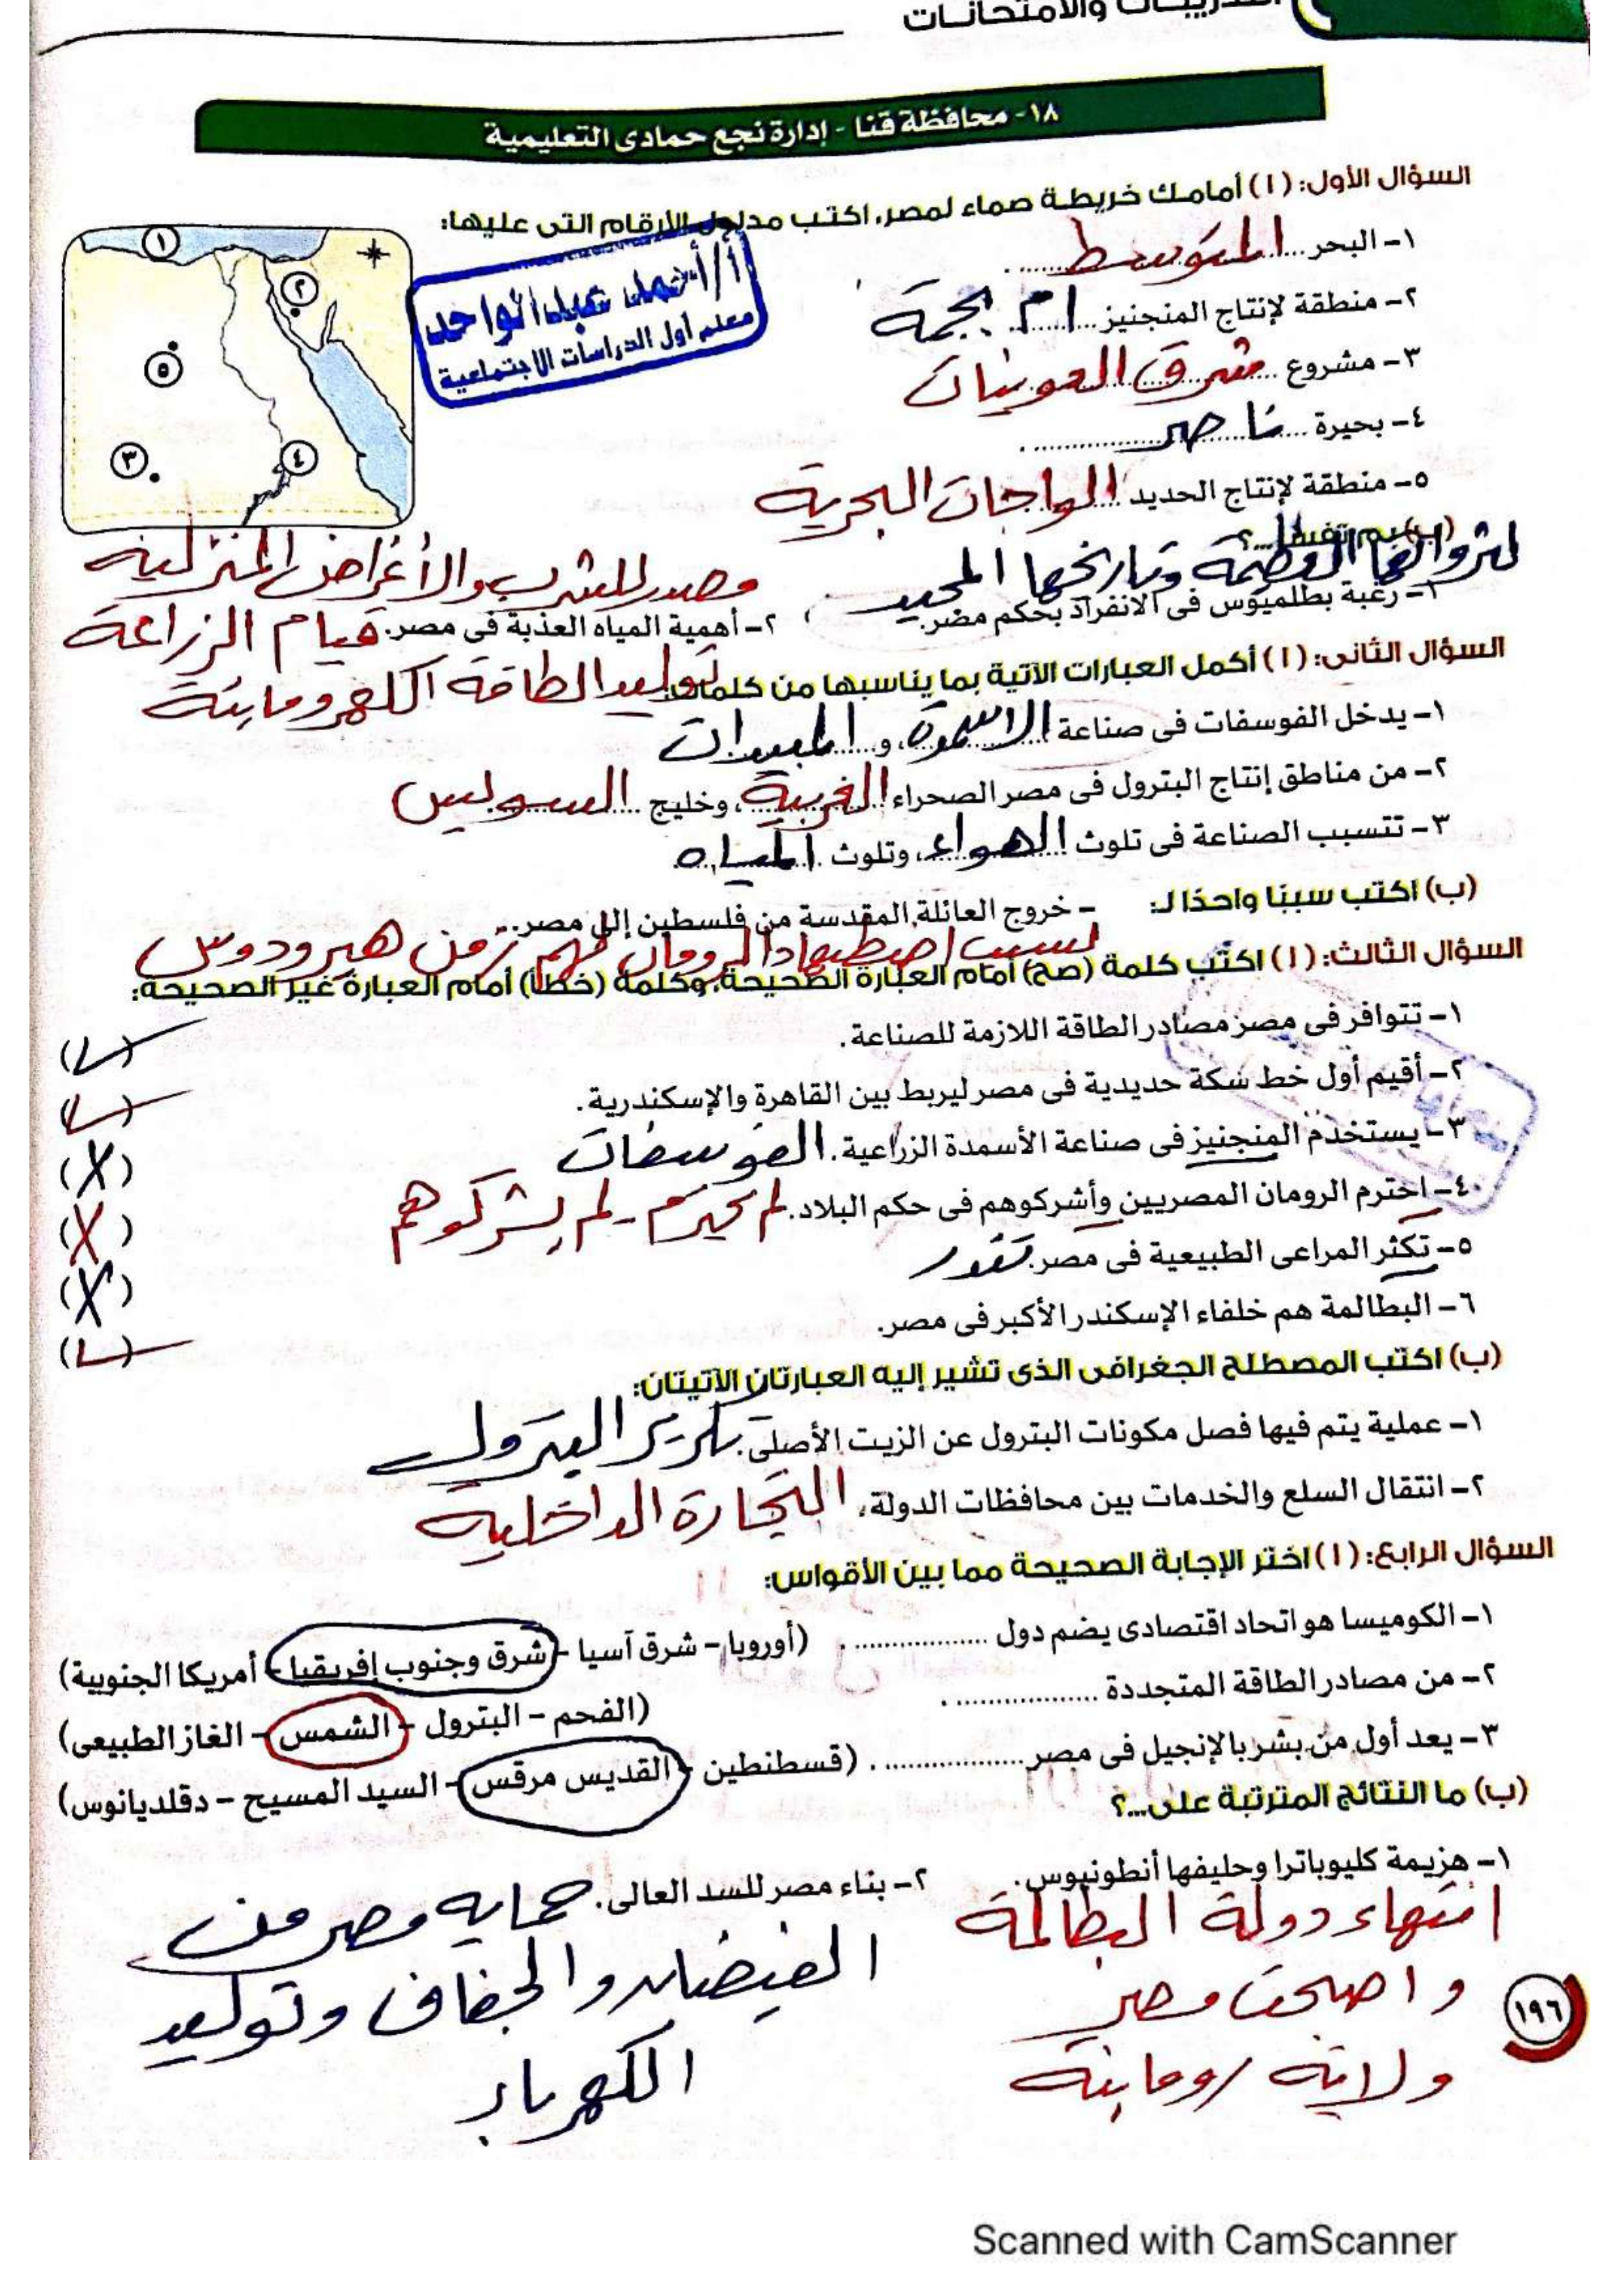 التدريبات والامتحانات
١٨- محافظة قنا - إدارة نجع حمادى التعليمية
السؤال الأول: (١) أمامك خريطة صماء لمصر، اكتب مدلول الأرقام التى عليها:
١- البحر المتوسط
٢- منطقة لإنتاج المنجنيز ام بجمة
٣- مشروع شرق العوينات
٤- بحيرة ناصر
٥- منطقة لإنتاج الحديد الواحات البحرية
١
٢
٥
٣
٤
أ/ أحمد عبد الواحد
معلم أول الدراسات الاجتماعية
(ب) بم تفسر...؟
لثرواتها العظيمة وتاريخها المجيد
١- رغبة بطلميوس فى الانفراد بحكم مصر.
مصدر للشرب والأغراض المنزلية
٢- أهمية المياه العذبة فى مصر. قيام الزراعة
توليد الطاقة الكهرومائية
السؤال الثانى: (١) أكمل العبارات الآتية بما يناسبها من كلمات:
١- يدخل الفوسفات فى صناعة الاسمدة، و المبيدات
٢- من مناطق إنتاج البترول فى مصر الصحراء الغربية، وخليج السويس
٣- تتسبب الصناعة فى تلوث الهواء، وتلوث المياه
(ب) اكتب سببًا واحدًا لـ: - خروج العائلة المقدسة من فلسطين إلى مصر.
بسبب اضطهاد الرومان لهم زمن هيرودوس
السؤال الثالث: (١) اكتب كلمة (صح) أمام العبارة الصحيحة، وكلمة (خطأ) أمام العبارة غير الصحيحة:
١- تتوافر فى مصر مصادر الطاقة اللازمة للصناعة. (✓)
٢- أقيم أول خط سكة حديدية فى مصر ليربط بين القاهرة والإسكندرية. (✓)
٣- يستخدم المنجنيز فى صناعة الأسمدة الزراعية. الفوسفات (X)
٤- احترم الرومان المصريين وأشركوهم فى حكم البلاد. لم يحترم - لم يشركوهم (X)
٥- تكثر المراعى الطبيعية فى مصر. (X)
٦- البطالمة هم خلفاء الإسكندر الأكبر فى مصر. (✓)
(ب) اكتب المصطلح الجغرافى الذى تشير إليه العبارتان الآتيتان:
١- عملية يتم فيها فصل مكونات البترول عن الزيت الأصلى. تكرير البترول
٢- انتقال السلع والخدمات بين محافظات الدولة. التجارة الداخلية
السؤال الرابع: (١) اختر الإجابة الصحيحة مما بين الأقواس:
١- الكوميسا هو اتحاد اقتصادى يضم دول .................. . (أوروبا - شرق آسيا - شرق وجنوب إفريقيا - أمريكا الجنوبية)
٢- من مصادر الطاقة المتجددة .................. .
(الفحم - البترول - الشمس - الغاز الطبيعى)
٣- يعد أول من بشر بالإنجيل فى مصر .................. . (قسطنطين - القديس مرقس - السيد المسيح - دقلديانوس)
(ب) ما النتائج المترتبة على...؟
١- هزيمة كليوباترا وحليفها أنطونيوس.
انتهاء دولة البطالمة
واصبحت مصر
ولاية رومانية
٢- بناء مصر للسد العالى. حماية مصر من
الفيضان والجفاف وتوليد
الكهرباء
١٩٦
Scanned with CamScanner